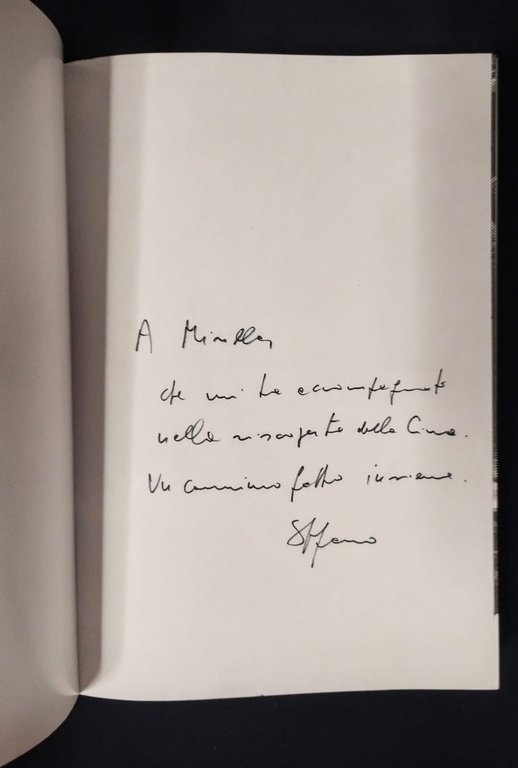 A Mirella,
che mi ha accompagnato
nella riscoperta della Cina.
Un cammino fatto insieme.
Stefano